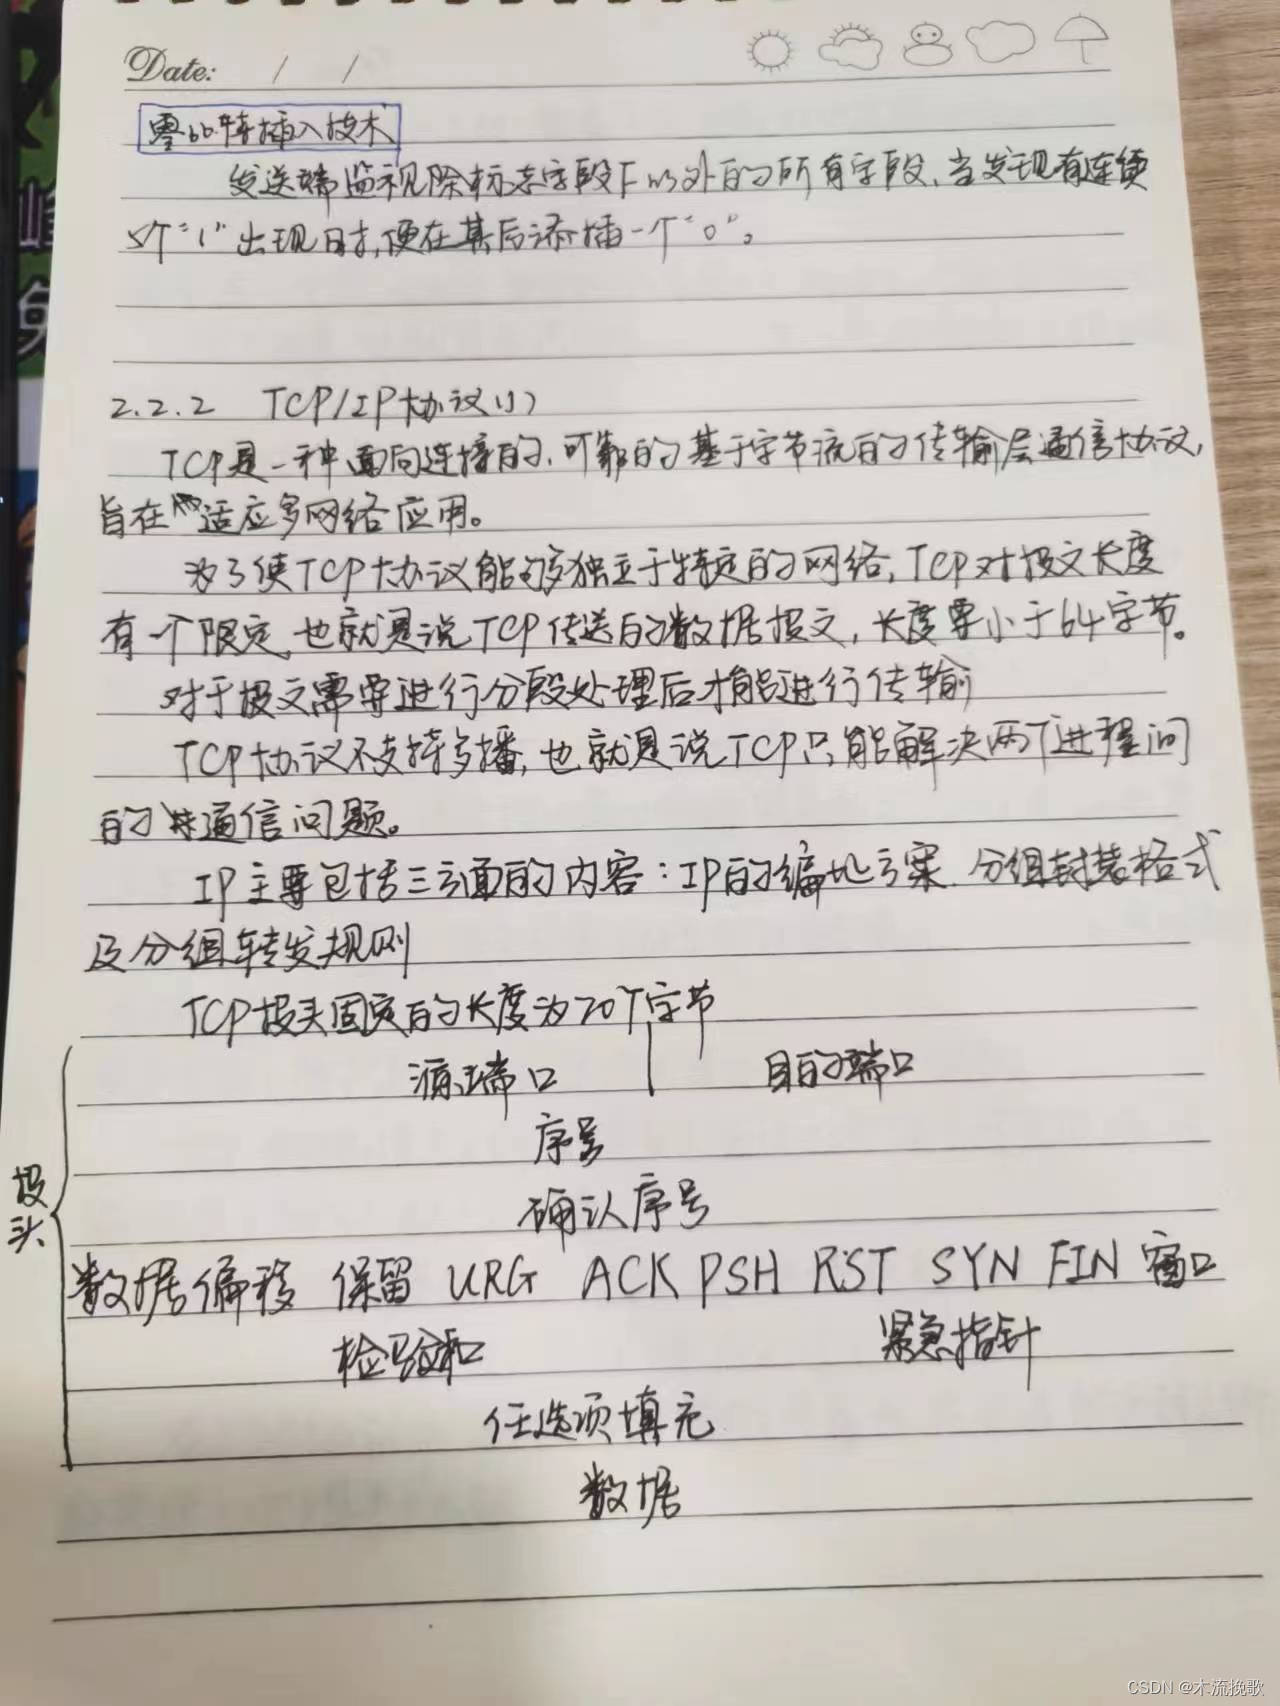 Date: / /
零比特插入技术
发送端监视除标志字段F以外的所有字段、当发现有连续
5个"1"出现时,便在其后添插一个"0"。
2.2.2 TCP/IP协议(1)
TCP是一种面向连接的、可靠的基于字节流的传输层通信协议,
旨在适应多网络应用。
为了使TCP协议能够独立于特定的网络,TCP对报文长度
有一个限定,也就是说TCP传送的数据报文,长度要小于64字节。
对于报文需要进行分段处理后才能进行传输
TCP协议不支持多播,也就是说TCP只能解决两个进程间
的通信问题。
IP主要包括三方面的内容:IP的编址方案、分组封装格式
及分组转发规则
TCP报头固定的长度为20个字节
源端口 目的端口
序号
报头
确认序号
数据偏移 保留 URG ACK PSH RST SYN FIN 窗口
检验和 紧急指针
任选项填充
数据
CSDN @木流挽歌